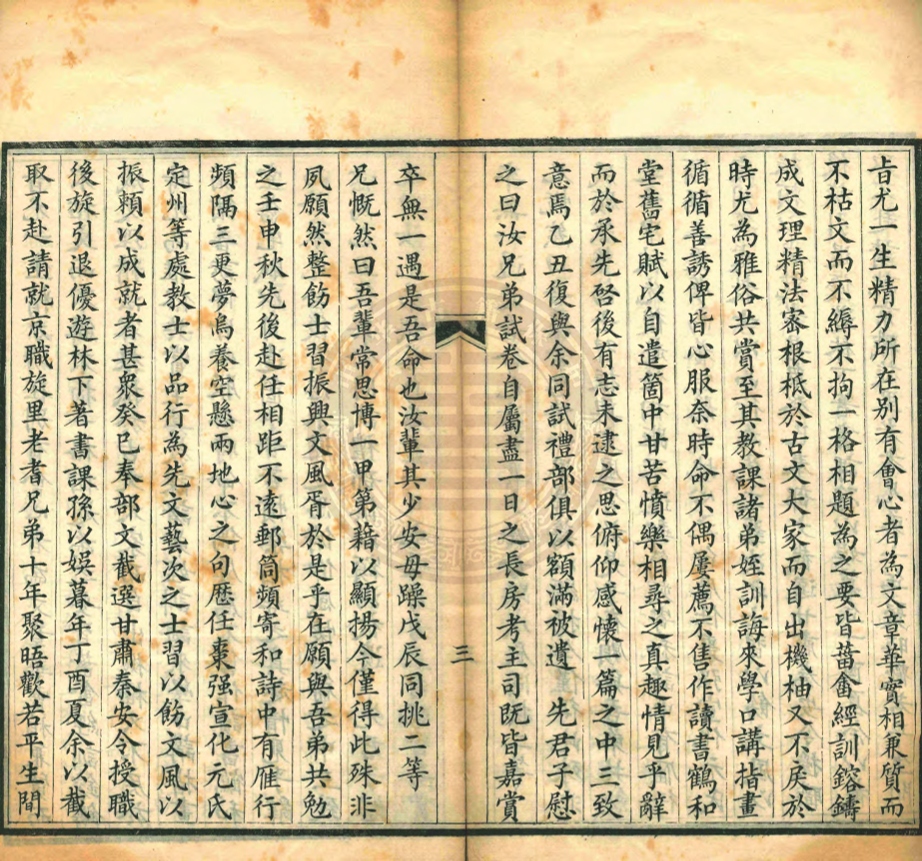 㫖尤一生精力所在別有會心者為文章華實相兼質而
不枯文而不縟不拘一格相題為之要皆菑畬經訓鎔鑄
成文理精法密根柢於古文大家而自出機柚又不戾於
時尤為雅俗共賞至其教課諸弟姪訓誨來學口講指畫
循循善誘俾皆心服奈時命不偶屢薦不售作讀書鶴和
堂舊宅賦以自遣箇中甘苦憤樂相尋之真趣情見乎辭
而於承先啓後有志未逮之思俯仰感懷一篇之中三致
意焉乙丑復與余同試禮部俱以額滿被遺　先君子慰
之曰汝兄弟試卷自屬盡一日之長房考主司既皆嘉賞
三
卒無一遇是吾命也汝輩其少安毋躁戊辰同挑二等
兄慨然曰吾輩常思博一甲第藉以顯揚今僅得此殊非
夙願然整飭士習振興文風胥於是乎在願與吾弟共勉
之壬申秋先後赴任相距不遠郵筒頻寄和詩中有雁行
頻隔三更夢烏養空懸兩地心之句歷任棗强宣化元氏
定州等處教士以品行為先文藝次之士習以飭文風以
振頼以成就者甚衆癸巳奉部文截選甘肅秦安令授職
後旋引退優遊林下著書課孫以娛暮年丁酉夏余以截
取不赴請就京職旋里老耆兄弟十年聚晤歡若平生閒